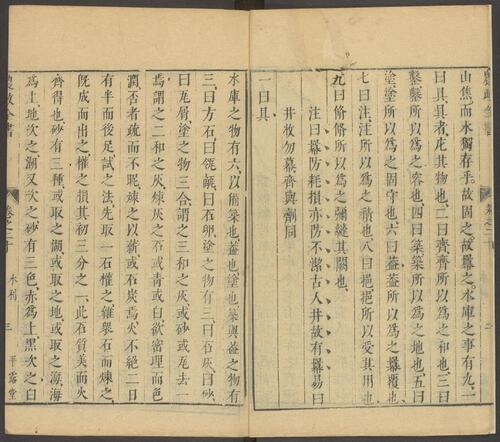 山焦而水獨存乎故固之故羃之水庫之事有九一
曰具具者庀其物也二曰齊齊所以爲之和也三曰
鑿鑿所以爲之容也四曰築築所以爲之地也五曰
塗塗所以爲之固守也六曰蓋蓋所以爲之羃覆也
七曰注注所以爲之積也八曰挹挹所以受其用也
九曰脩脩所以爲之彌縫其闕也
注曰羃防耗損亦防不潔古人井故有羃易曰
井收勿幕齊與劑同
一曰具
水庫之物有六以備築也蓋也塗也築與蓋之物有
三曰方石曰瓴甋曰石卵塗之物有三曰石灰曰砂
曰瓦屑塗之物三合謂之三和之灰或砂或瓦去一
焉謂之二和之灰煉灰之石或青或白欲密理而色
潤否者疏而不昵煉之以薪或石炭焉火不絕二日
有半而後足試之法先取一石權之雜衆石而煉之
既成而出之權之損其初三分之一此石質美而火
齊得也砂有三種或取之湖或取之地或取之海海
爲上地次之湖又次之砂有三色赤爲上黑次之白
農政全書
卷之二十
水利
三
平露堂